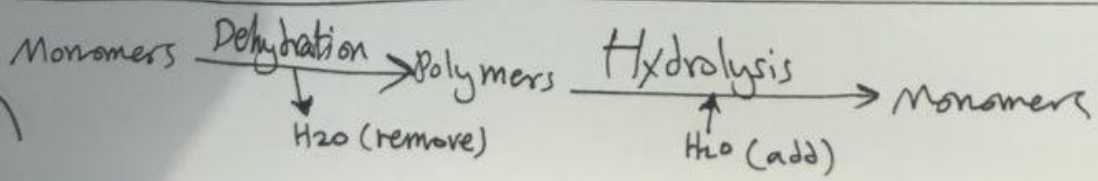 Monomers Dehydration Polymers Hydrolysis Monomers
H2O (remove) H2O (add)